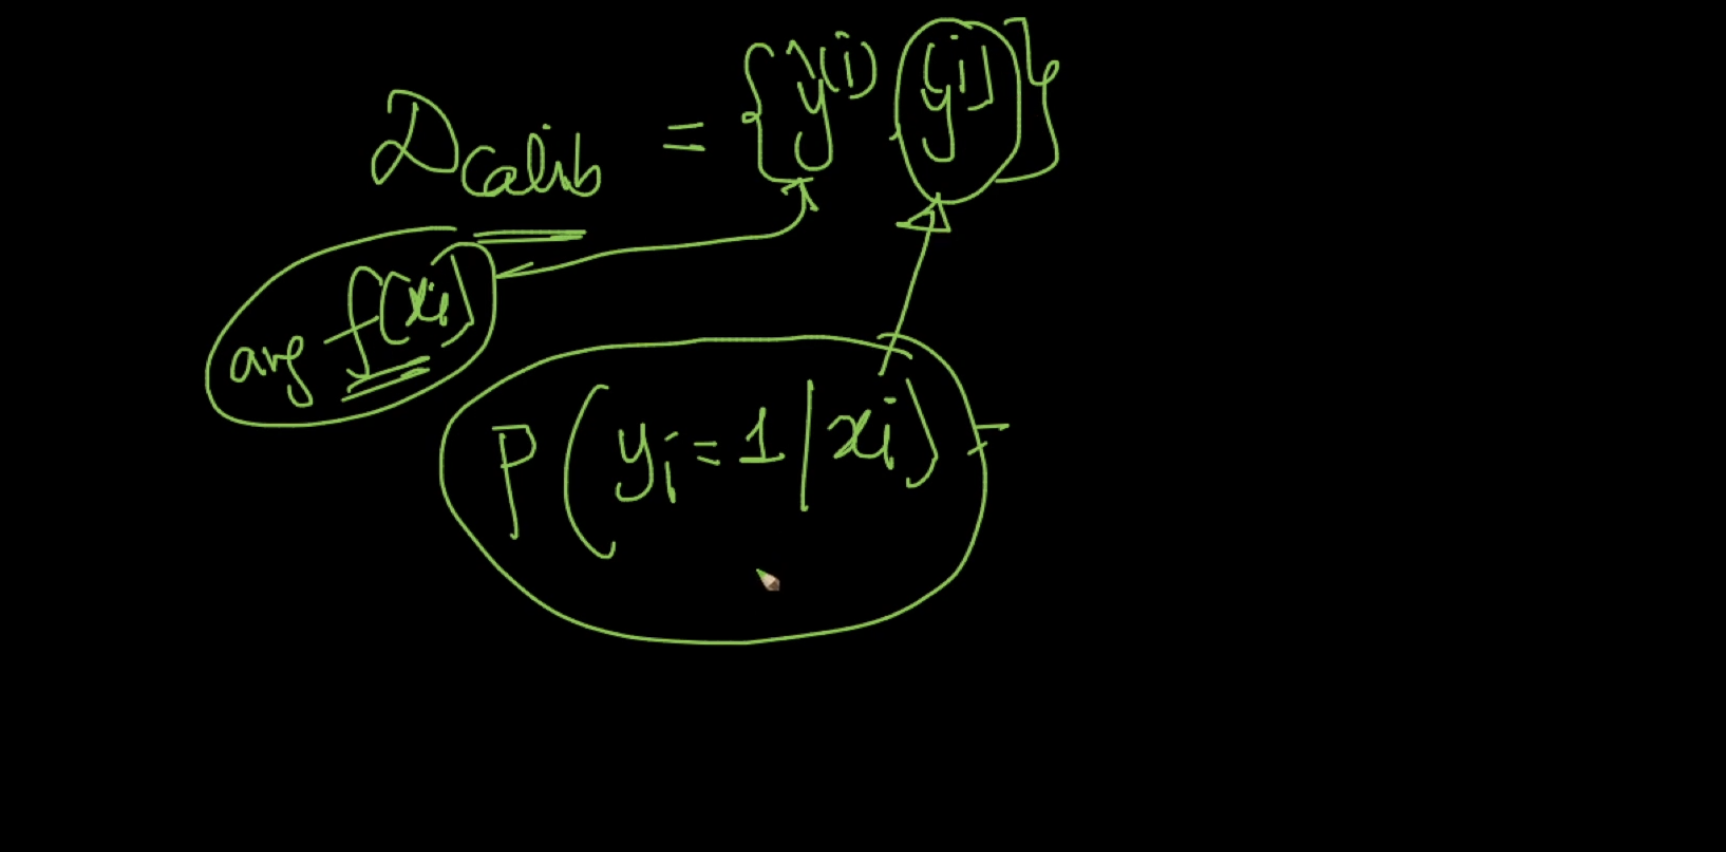 D_calib = {ŷ^(i), y^(i)}
avg f(xi)
P(yi=1|xi) =